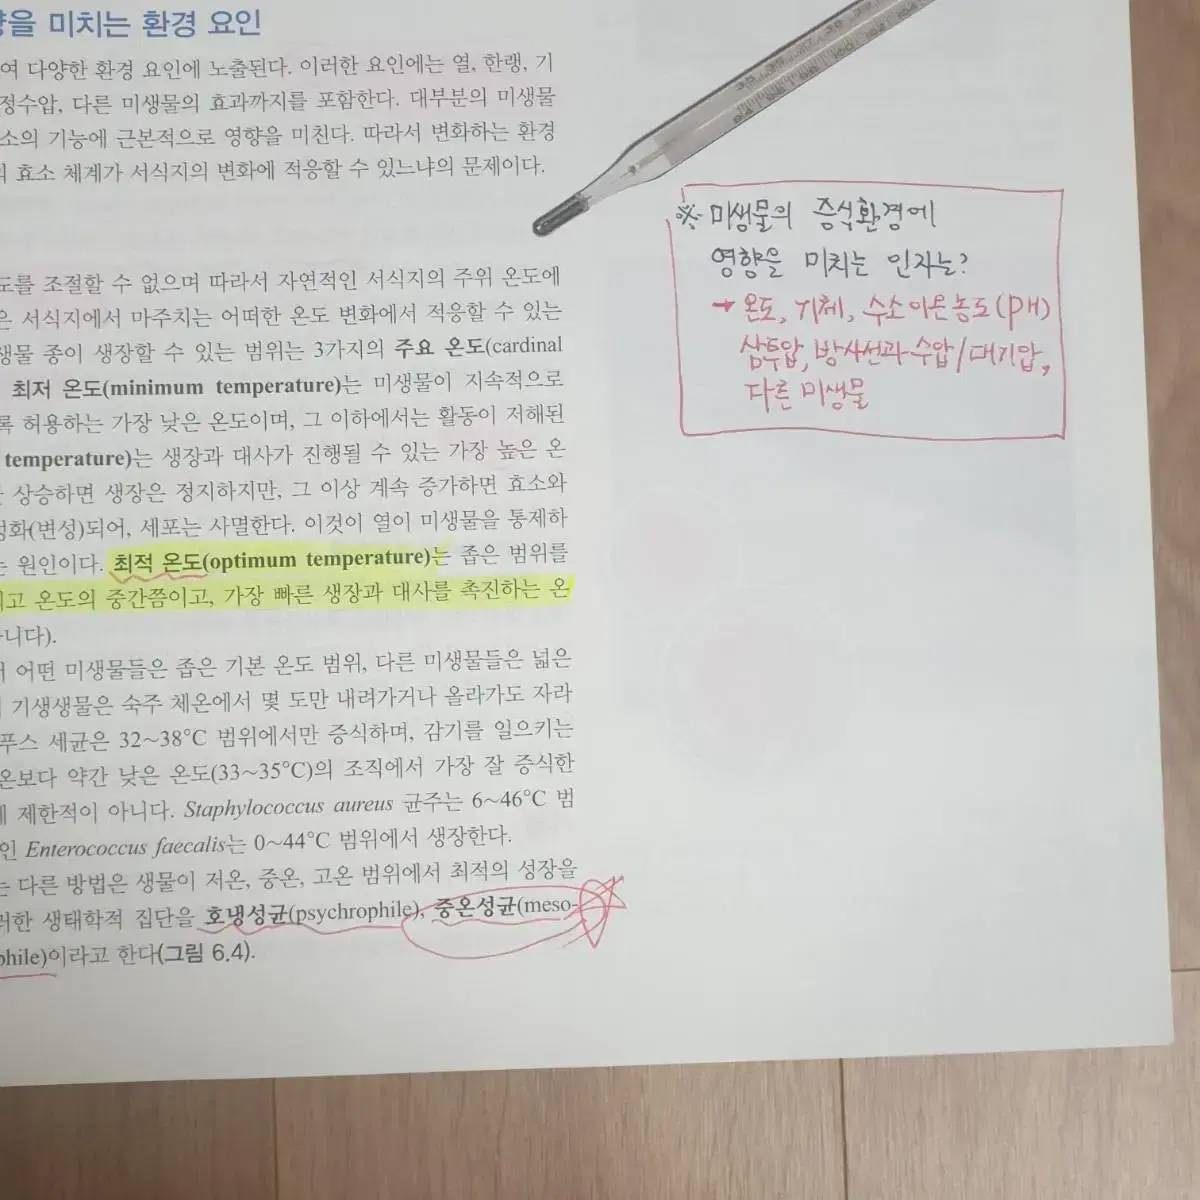 향을 미치는 환경 요인
여 다양한 환경 요인에 노출된다. 이러한 요인에는 열, 한랭, 기
정수압, 다른 미생물의 효과까지를 포함한다. 대부분의 미생물
소의 기능에 근본적으로 영향을 미친다. 따라서 변화하는 환경
효소 체계가 서식지의 변화에 적응할 수 있느냐의 문제이다.
※ 미생물의 증식환경에
영향을 미치는 인자는?
→ 온도, 기체, 수소이온농도(pH)
삼투압, 방사선과 수압/대기압,
다른 미생물
도를 조절할 수 없으며 따라서 자연적인 서식지의 주위 온도에
은 서식지에서 마주치는 어떠한 온도 변화에서 적응할 수 있는
생물 종이 생장할 수 있는 범위는 3가지의 주요 온도(cardinal
최저 온도(minimum temperature)는 미생물이 지속적으로
록 허용하는 가장 낮은 온도이며, 그 이하에서는 활동이 저해된
temperature)는 생장과 대사가 진행될 수 있는 가장 높은 온
상승하면 생장은 정지하지만, 그 이상 계속 증가하면 효소와
성화(변성)되어, 세포는 사멸한다. 이것이 열이 미생물을 통제하
는 원인이다. 최적 온도(optimum temperature)는 좁은 범위를
이고 온도의 중간쯤이고, 가장 빠른 생장과 대사를 촉진하는 온
아니다).
어떤 미생물들은 좁은 기본 온도 범위, 다른 미생물들은 넓은
기생생물은 숙주 체온에서 몇 도만 내려가거나 올라가도 자라
푸스 세균은 32~38°C 범위에서만 증식하며, 감기를 일으키는
온보다 약간 낮은 온도(33~35°C)의 조직에서 가장 잘 증식한
제한적이 아니다. Staphylococcus aureus 균주는 6~46°C 범
인 Enterococcus faecalis는 0~44°C 범위에서 생장한다.
는 다른 방법은 생물이 저온, 중온, 고온 범위에서 최적의 성장을
러한 생태학적 집단을 호냉성균(psychrophile), 중온성균(meso-
phile)이라고 한다(그림 6.4).